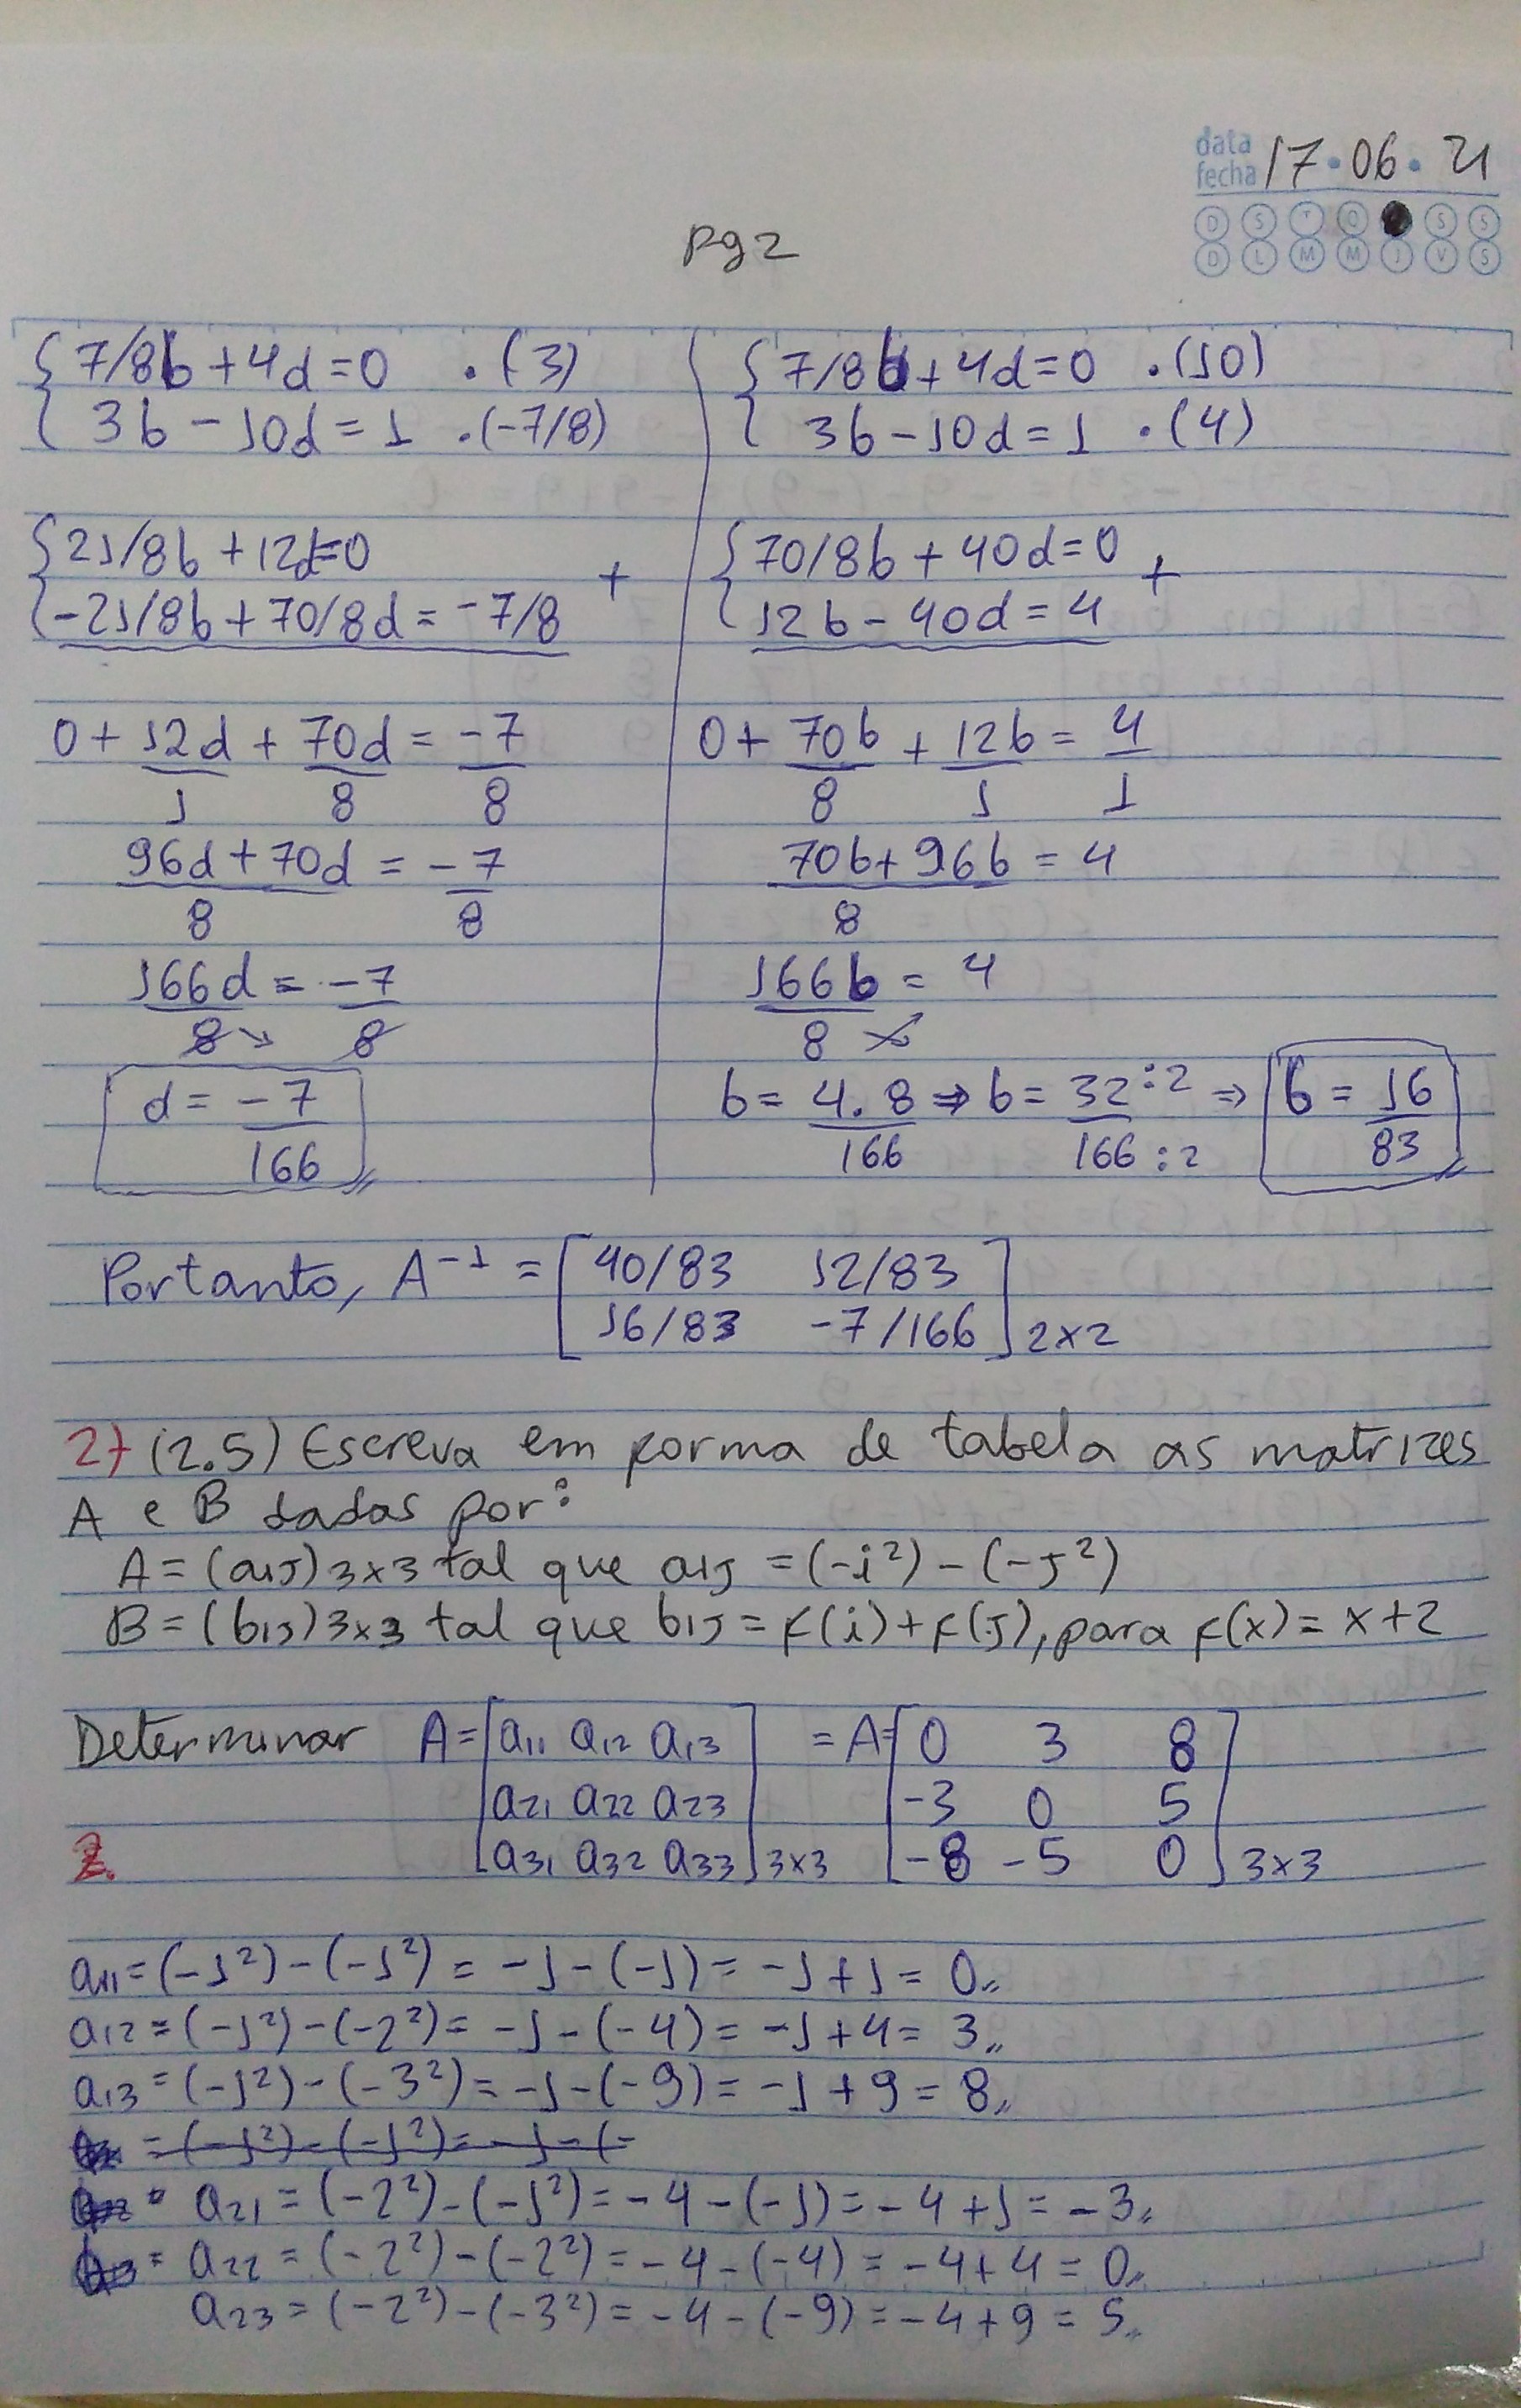 data
fecha 17 • 06 • 21
D S T Q S S
D L M M J V S
pg 2
{ 7/8b + 4d = 0 . (3)
{ 3b - 10d = 1 . (-7/8)
{ 21/8b + 12d = 0
{ -21/8b + 70/8d = -7/8 +
0 + 12d/1 + 70d/8 = -7/8
96d + 70d/8 = -7/8
166d/8 = -7/8
d = -7/166
{ 7/8b + 4d = 0 . (10)
{ 3b - 10d = 1 . (4)
{ 70/8b + 40d = 0 +
{ 12b - 40d = 4
0 + 70b/8 + 12b/1 = 4/1
70b + 96b/8 = 4
166b/8 = 4
b = 4.8/166 ⇒ b = 32:2/166:2 ⇒ b = 16/83
Portanto, A⁻¹ = [ 40/83 12/83
16/83 -7/166 ] 2x2
2) (2.5) Escreva em forma de tabela as matrizes
A e B dadas por:
A = (aij) 3x3 tal que aij = (-i²) - (-j²)
B = (bij) 3x3 tal que bij = f(i) + f(j), para f(x) = x + 2
Determinar A = [ a11 a12 a13 = A = [ 0 3 8
a21 a22 a23 -3 0 5
2. a31 a32 a33 ] 3x3 -8 -5 0 ] 3x3
a11 = (-1²) - (-1²) = -1 - (-1) = -1 + 1 = 0
a12 = (-1²) - (-2²) = -1 - (-4) = -1 + 4 = 3
a13 = (-1²) - (-3²) = -1 - (-9) = -1 + 9 = 8
= (-1²) - (-1²) = -1 - (-
a21 = (-2²) - (-1²) = -4 - (-1) = -4 + 1 = -3
= a22 = (-2²) - (-2²) = -4 - (-4) = -4 + 4 = 0
a23 = (-2²) - (-3²) = -4 - (-9) = -4 + 9 = 5